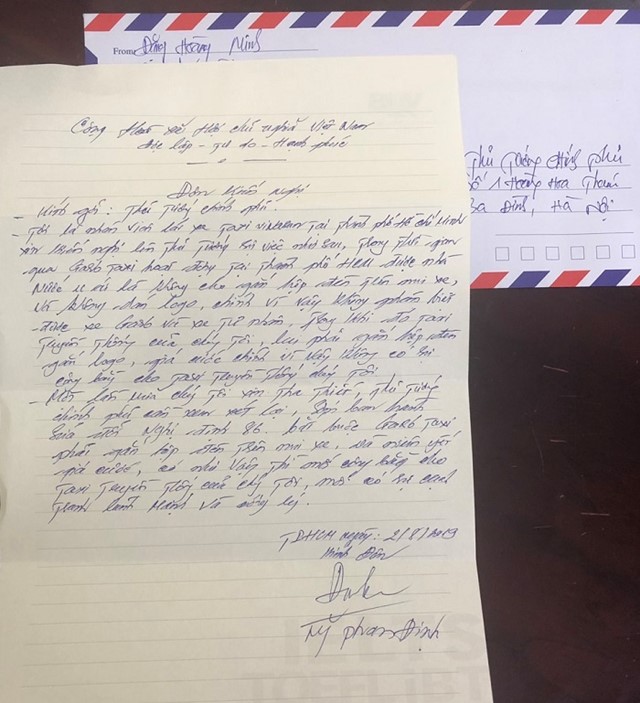 From: Đặng Hoàng Minh
Thủ Tướng Chính phủ
Số 1 Hoàng Hoa Thám
Ba Đình, Hà Nội
Cộng Hoà Xã Hội chủ nghĩa Việt Nam
Độc lập - Tự do - Hạnh phúc
Đơn Kiến Nghị
- Kính gửi: Thủ Tướng chính phủ
- Tôi là nhân viên lái xe Taxi vinasun Tại Thành phố Hồ Chí Minh
xin kiến nghị lên Thủ Tướng sự việc như sau, Trong Thời gian
qua Grab Taxi hoạt động Tại Thành phố HCM được nhà
Nước ưu ái là không cho gắn hộp đèn Trên mui xe,
và không dán logo, chính vì vậy không phân biệt
được xe Grab và xe Tư nhân, Trong khi đó Taxi
Truyền Thống của chúng Tôi, lại phải gắn hộp đèn
gắn logo, giá cước chính vì vậy không có sự
công bằng cho Taxi Truyền Thống chúng Tôi
- Một lần nữa chúng Tôi xin Tha Thiết, Thủ Tướng
chính phủ cần xem xét lại, ban hành
sửa đổi Nghị định 86. bắt buộc Grab Taxi
phải gắn hộp đèn Trên mui xe, và niêm yết
giá cước, có như vậy Thì mới công bằng cho
Taxi Truyền Thống của chúng Tôi, mới có sự cạnh
Tranh lành mạnh và công lý.
TPHCM ngày: 2/8/2019
Người Đơn
Phan Định